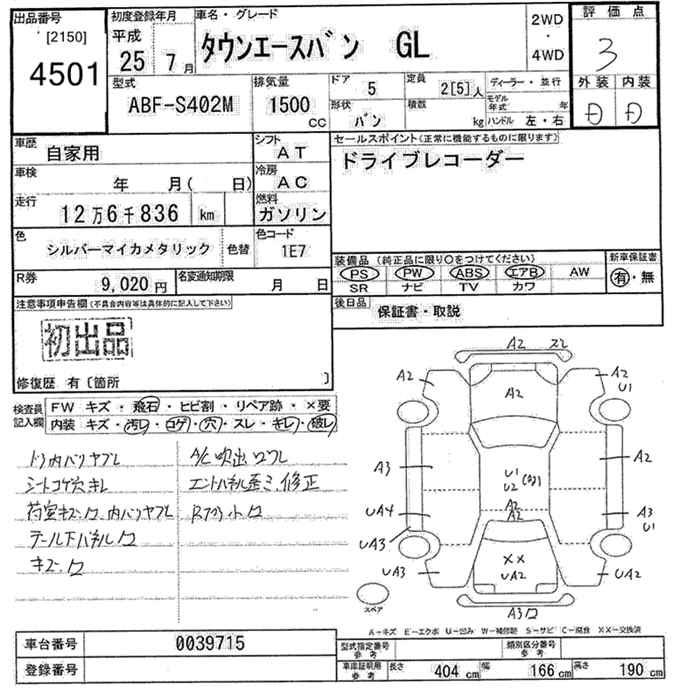 出品番号
[2150]
4501
初度登録年月
平成
25年 7月
車名・グレード
タウンエースバン GL
2WD
・
4WD
評価点
3
外装 内装
D D
型式
ABF-S402M
排気量
1500
CC
ドア
5
形状
バン
定員
2[5]人
積数
kg
ディーラー・並行
モデル年式 年
ハンドル 左・右
車歴
自家用
シフト
AT
車検
年 月( 日)
冷房
AC
走行
12万6千836 km
燃料
ガソリン
色
シルバーマイカメタリック
色替
色コード
1E7
R券
9,020円
名変通知期限
月 日
セールスポイント(正常に機能するものに限ります)
ドライブレコーダー
装備品 (純正品に限り〇をつけてください)
PS PW ABS エアB AW
SR ナビ TV カワ
新車保証書
有・無
後日品
保証書・取説
注意事項申告欄(不具合内容等は具体的に記入して下さい)
初出品
修復歴 有〔箇所 〕
検査員記入欄
FW キズ・飛石・ヒビ割・リペア跡・×要
内装 キズ・汚レ・コゲ・穴・スレ・キレ・破レ
ドア内バリヤブレ
シートコゲ穴キレ
テール下パネル
キズ
A/C吹出口
修正
A2
A2
A2
A2
U1
A3
U1
U2
A2
UA4
A2
A2
A3
U1
UA3
UA3
XX
UA2
UA2
スペア
A3
A-キズ E-エクボ U-凹み W-補修跡 S-サビ C-腐食 XX-交換済
車台番号
0039715
登録番号
型式指定番号
参考
類別区分番号
参考
車庫証明用
参考
長さ 404 cm
幅 166 cm
高さ 190 cm